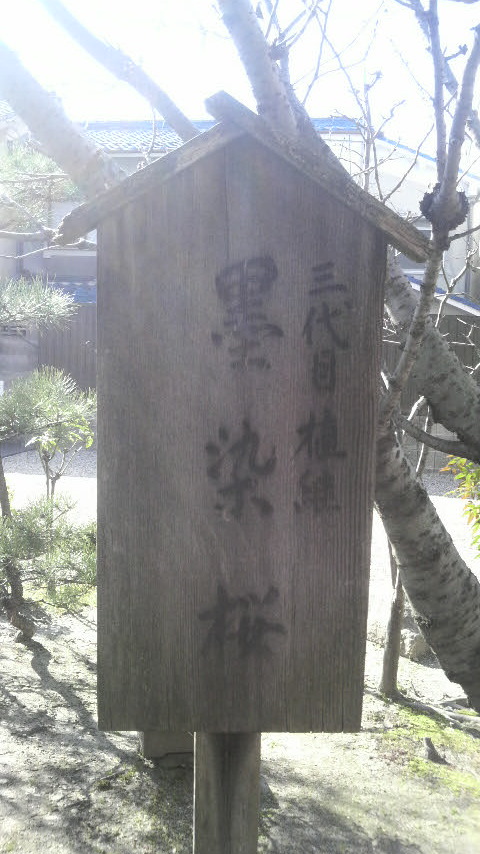 三代目植継
墨染桜